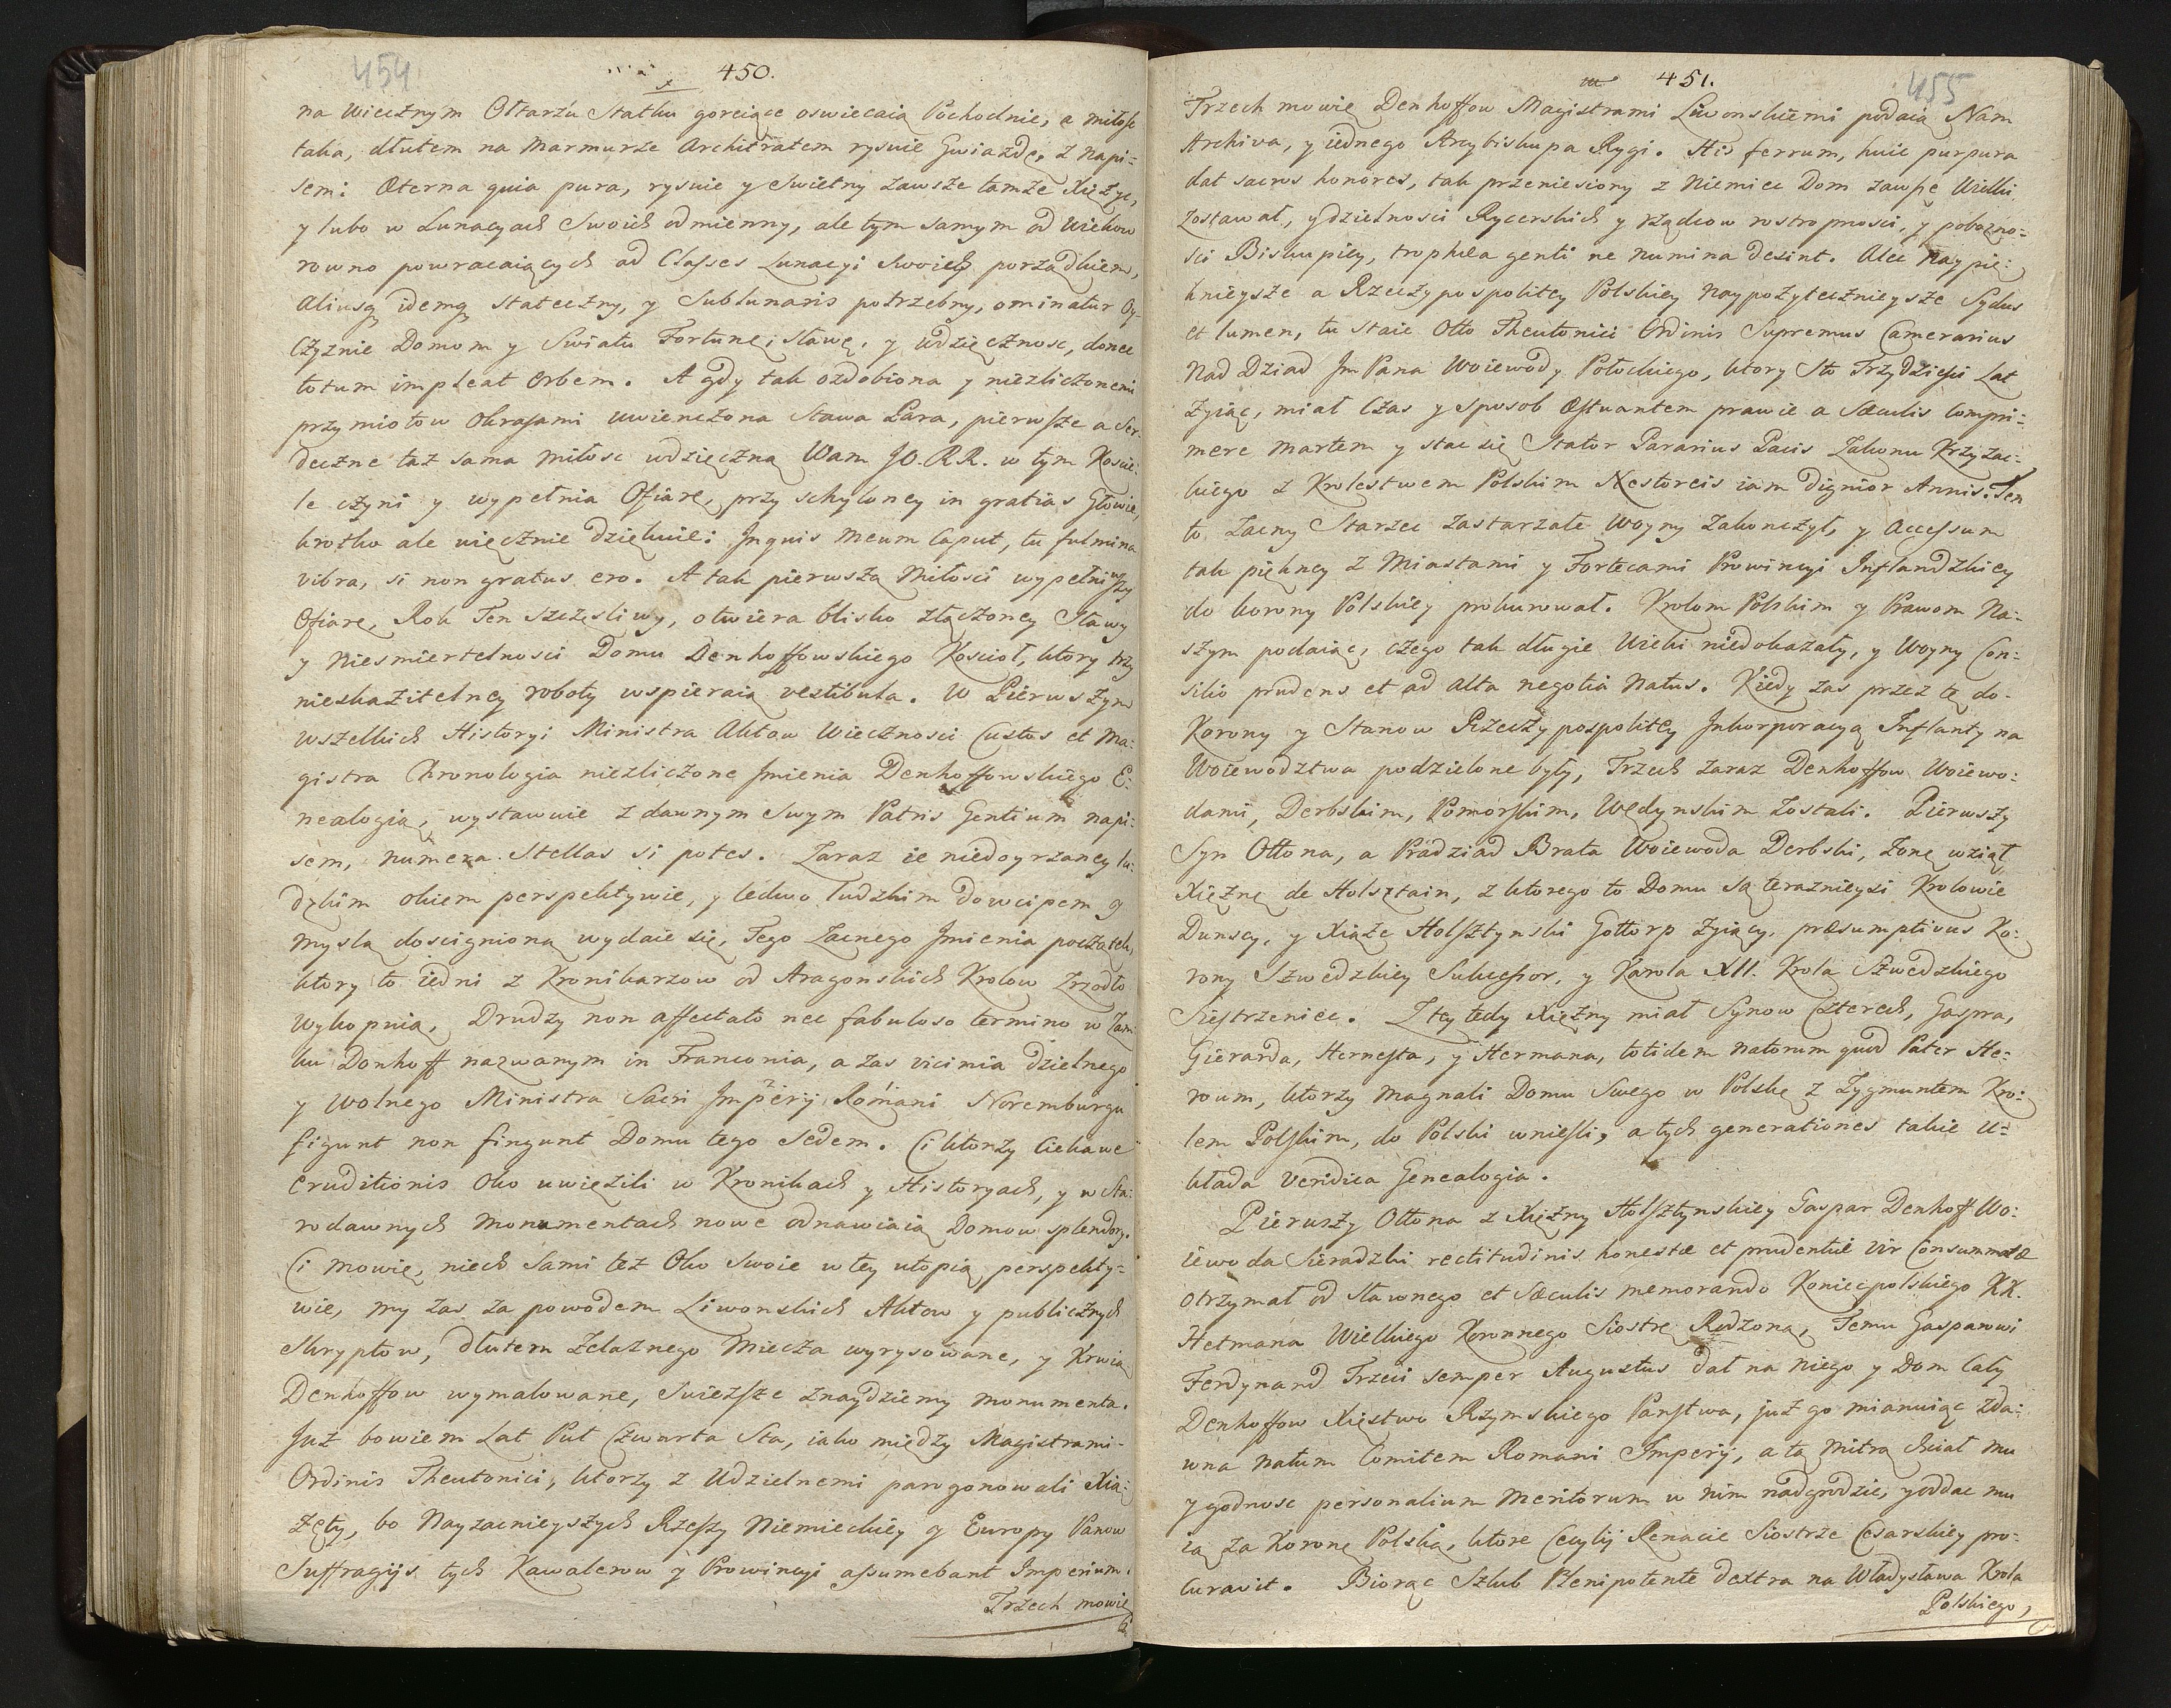 454
450.
na wiecznym Ołtarzu Statku goreiące oswiecaią Pochodnie, a miłość
taka, dłutem na Marmurze Architratem rysuie Gwiazdę, z napi=
sem: Æterna quia pura, rysuie y swietny zawsze tamże Xiężyc,
y lubo w Lunacyach Swoich odmienny, ale tym samym od wiekow
rowno powracaiących ad Classes Lunacyi Swoiey porządkiem,
aliusq idemq stateczny, y Sublunaris potrzebny, ominatur Oy=
czyznie Domom y Swiatu Fortunę, Sławę, y wdzięcznosc, donec
totum impleat Orbem. A gdy tak ozdobiona y niezliczonemi
przymiotow Okrasami uwienczona Stawa Para, pierwsze a Ser=
deczne taż sama miłosc wdzięczną Wam JO. RR. w tym Koscie=
le czyni y wypełnia Ofiarę, przy schyloney in gratias Głowie,
krotko ale wiecznie dziękuie: Inquis meum Caput, tu fulmina
vibra, si non gratus ero. A tak pierwszą Miłosci wypełniwszy
Ofiarę, Rok Ten szczęsliwy, otwiera blisko złączoney Sławy
y Niesmiertelnosci Domu Denhoffowskiego Kościoł, ktory trzy
nieskazitelney roboty wspieraią vestibula. W Pierwszym
wszelkich Historyi Ministra Aktow Wiecznosci Custos et Ma=
gistra Chronologia niezliczone Imienia Denhoffowskiego E=
nealogią, wystawuie z dawnym swym Patris Gentium napi=
sem, numera Stellas si potes. Zaraz ie niedoyrzaney lu=
dzkim okiem perspektywie, y ledwo ludzkim dowcipem y
mysla doscigniona wydaie się, Tego Zacnego Imienia początek,
ktory to iedni z Kronikarzow od Aragonskich Krolow Zrzodło
Wykopuią, Drudzy non affectato nec fabuloso termino w Zam=
ku Donhoff nazwanym in Franconia, a zas vicinia dzielnego
y Wolnego Ministra Sacri Imperij Romani Noremburgu
figunt non fingunt Domu tego Sedem. Ci ktorzy ciekawe
Eruditionis Oko uwięzili w Kronikach y Historyach, y w Sta=
rodawnych Monumentach nowe odnawiaią Domow splendory.
Ci mowię, niech Sami też Oko Swoie w tey utopią perspekty=
wie, my zas za powodem Liwonskich Aktow y publicznych
Skryptow, dłutem Żelaznego Miecza wyrysowane, y Krwią
Denhoffow wymalowane, Swieższe znaydziemy monumenta.
Już bowiem Lat Puł Czwarta Sta, iako między Magistrami=
Ordinis Theutonici, ktorzy z Udzielnemi parogonowali Xia=
żęty, bo Nayzacnieyszych Rzeszy Niemieckiey y Europy Panow
Suffragijs tych Kawalerow y Prowincyi assumebant Imperium.
Trzech mowię
455
451.
Trzech mowię Denhoffow Magistrami Liwonskiemi podaią Nam
Archiva, y iednego Arcybiskupa Rygi. His ferrum, huic purpura
dat sacros honores, tak przeniesiony z Niemiec Dom zawsze Wielki
zostawał, y dzielnosci Rycerskich y rządcow rostropnosci, y pobożno=
sci Biskupiey, trophæa genti ne numina desint. Alec naypię=
knieysze a Rzeczypospolitey Polskiey naypożytecznieysze Sydus
et lumen, tu staie Otto Theutonici Ordinis Supremus Camerarius
Nad Dziad Jm Pana Woiewody Połockiego, ktory Sto Trzydzieści Lat
żyiąc, miał czas y sposob Æstuantem prawie a Sæculis compri=
mere martem y stac się Stator Pararius Pacis Zakonu Krzyżac=
kiego z Krolestwem Polskim Nestoreis iam dignior Annis. Ten
to Zacny Starzec zastarzałe Woyny zakonczył, y Accessum
tak piękney z Miastami y Fortecami Prowincyi Inflandzkiey
do korony Polskiey prokurował. Krolom Polskim y Prawom Na=
szym podaiąc, czego tak długie Wieki niedokazały, y Woyny Con=
silio prudens et ad alta negotia Natus. Kiedy zas przez tę do=
Korony y Stanow Rzeczypospolitey Inkorporacyą Inflanty na
Woiewodztwa podzielone były, Trzech zaraz Denhoffow Woiewo=
dami, Derbskim, Pomorskim, Wędynskim zostali. Pierwszy
Syn Ottona, a Pradziad Brata Woiewoda Derbski, żonę wziął
Xięznę de Holsztain, z ktorego to Domu są teraznieysi Krolowie
Dunscy, y Xiąże Holsztynski Gottorp żyiący, præsumptivus Ko=
rony Szwedzkiey Sukcessor, y Karola XII. Krola Szwedzkiego
Siestrzeniec. Z tey tedy Xiężny miał Synow Czterech, Gaspra,
Gierarda, Hernesta, y Hermana, totidem natorum quod Pater He=
roum, ktorzy magnali Domu Swego w Polskę z Zygmuntem Kro=
lem Polskim, do Polski wniesli, a tych generationes takie u=
kłada Veridica Genealogia.
Pierwszy Ottona z Xiężny Holsztynskiey Gaspar Denhoff Wo=
iewoda Sieradzki rectitudinis honestæ et prudentiæ vir Consummatæ
otrzymał od sławnego et Sæculis memorando Koniecpolskiego KK.
Hetmana Wielkiego Koronnego Siostrę Rodzoną, Temu Gasparowi
Ferdynand Trzeci semper Augustus dał na niego y Dom Cały
Denhoffow Xięstwo Rzymskiego Panstwa, już go mianuiąc zda=
wna natum Comitem Romani Imperij, a tą Mitrą chciał mu
y godnosc personalium Meritorum w nim nadgrodzic, y oddac mu
ią za Koronę Polską, ktore Cecylij Renacie Siostrze Cesarskiey pro=
curavit. Biorąc Szlub Plenipotente dextra na Władysława Krola
Polskiego,